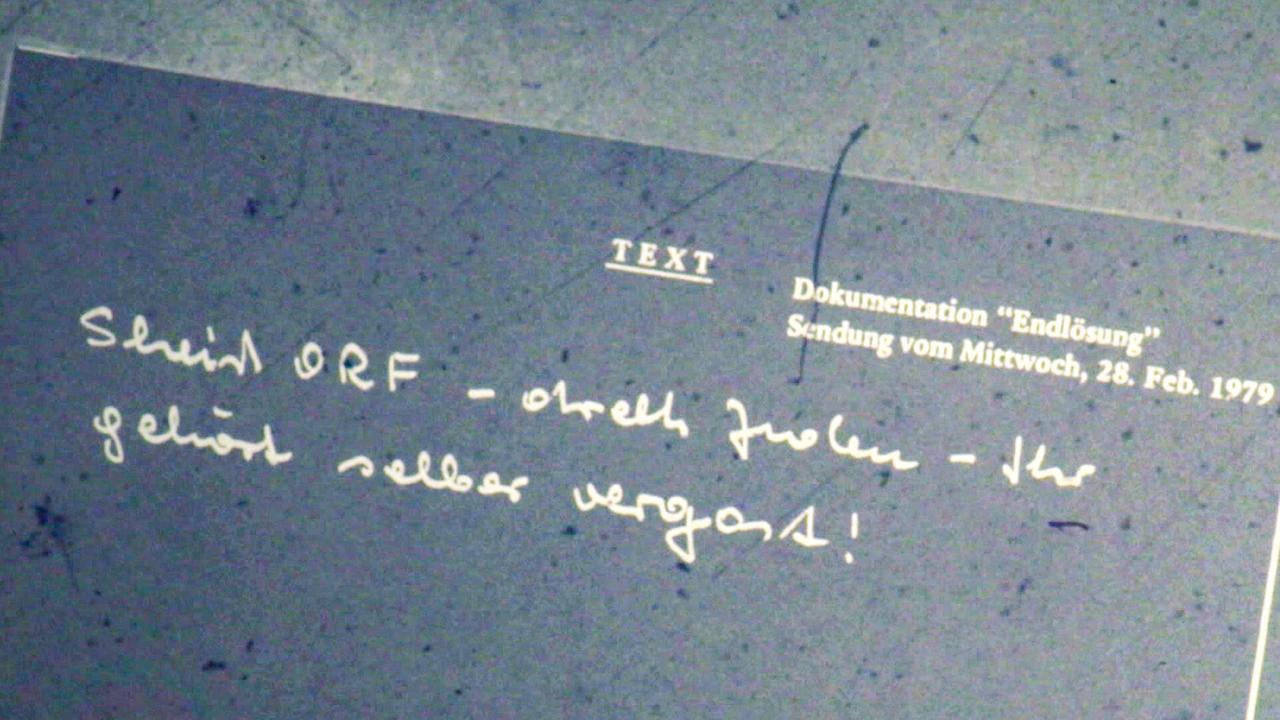 TEXT
Dokumentation “Endlösung”
Sendung vom Mittwoch, 28. Feb. 1979
Scheiß ORF - drecks Juden - Ihr
gehört selber vergast!